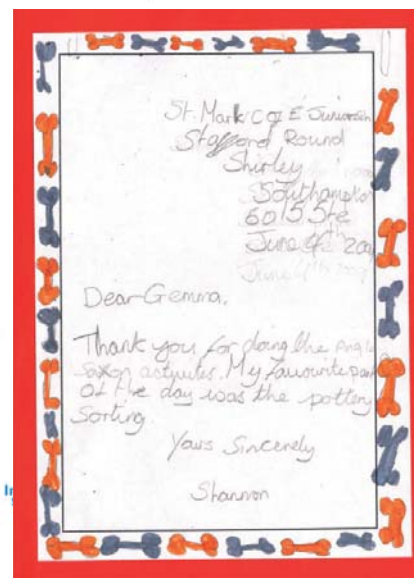 St. Mark C of E Juniorsch
Stafford Round
Shirley
Southampton
6015 5te
June 4th 2009
June 4th 2009
Dear Gemma.
Thank you for doing the Anglo
Saxon activites. My favourite part
of the day was the pottery
Sorting
Yours Sincerely
Shannon